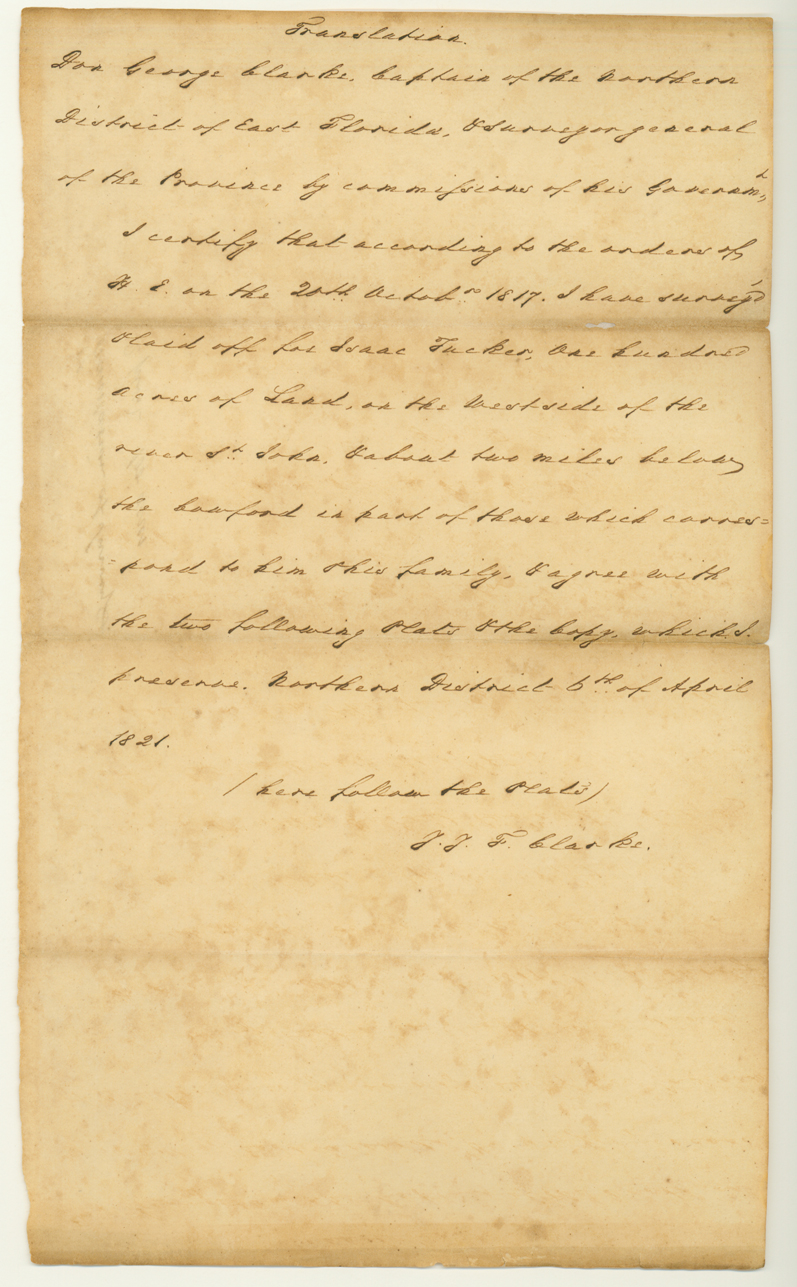 Translation.
Don George Clarke, Captain of the Northern
District of East Florida, & Surveyor general
of the Province by commissions of his Governmt,,
I certify that according to the orders of
H. E. on the 20th Octobre 1817. I have survey'd
& laid off for Isaac Tucker, One hundred
acres of Land, on the West side of the
river St. John, & about two miles below
the Cowford in part of those which corres=
=pond to him & his family, & agree with
the two following Plats & the Copy, which I.
preserve. Northern District 6th of April
1821.
(here follow the Plats)
G. J. F. Clarke.